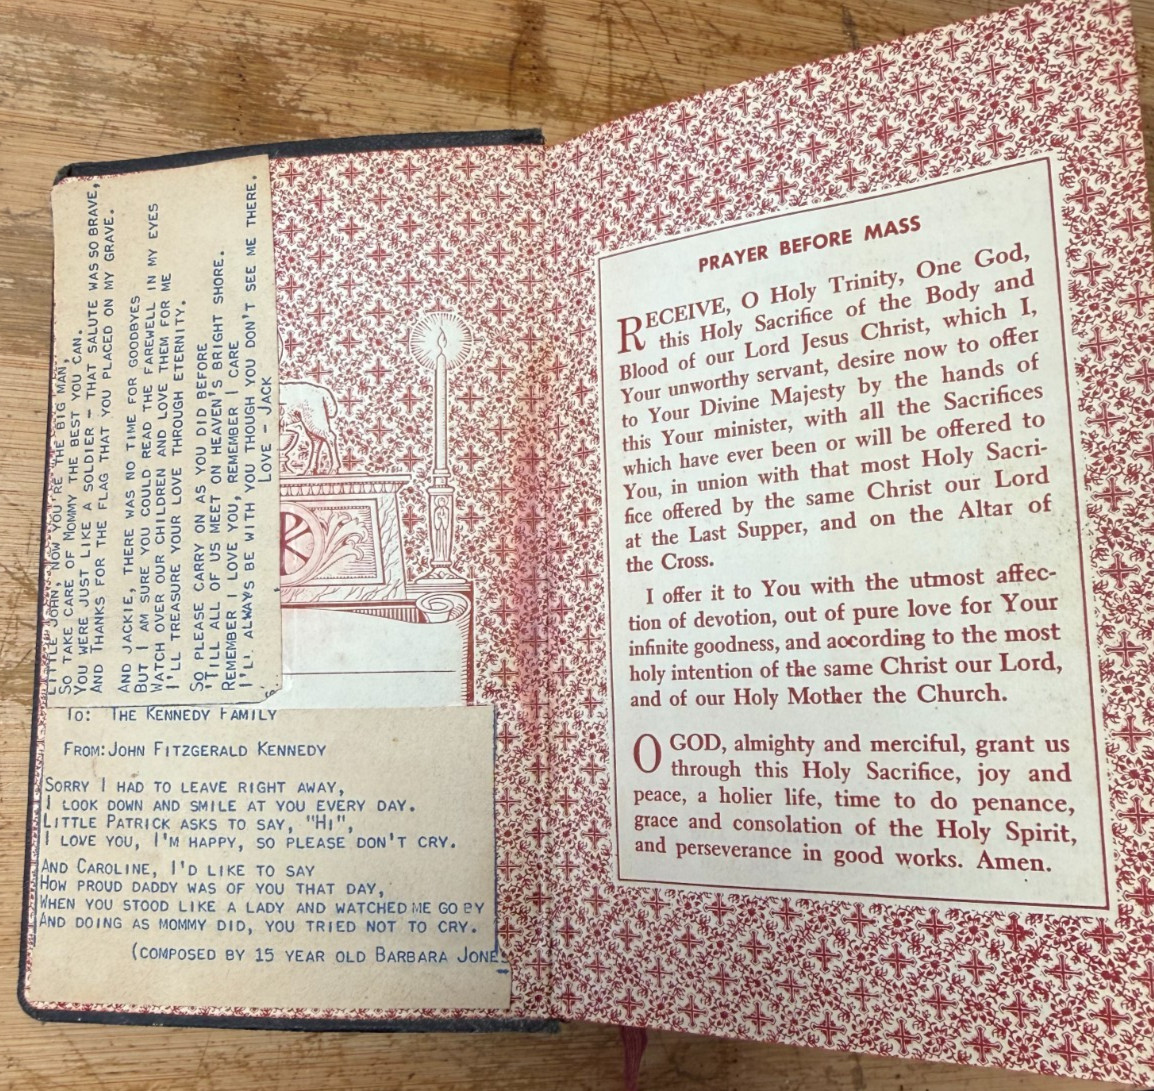 To: The Kennedy Family
From: John Fitzgerald Kennedy
Sorry I had to leave right away,
I look down and smile at you every day.
Little Patrick asks to say, "Hi",
I love you, I'm happy, so please don't cry.
And Caroline, I'd like to say
How proud Daddy was of you that day,
When you stood like a lady and watched me go by
And doing as mommy did, you tried not to cry.
(composed by 15 year old Barbara Jones
Little John, now you're the big man,
So take care of Mommy the best you can.
You were just like a soldier - that salute was so brave,
And thanks for the flag that you placed on my grave.
And Jackie, there was no time for goodbyes
But I am sure you could read the farewell in my eyes
Watch over our children and love them for me
I'll treasure your love through eternity.
So please carry on as you did before
'Till all of us meet on heaven's bright shore.
Remember I love you, remember I care
I'll always be with you though you don't see me there.
Love - Jack
PRAYER BEFORE MASS
RECEIVE, O Holy Trinity, One God,
this Holy Sacrifice of the Body and
Blood of our Lord Jesus Christ, which I,
Your unworthy servant, desire now to offer
to Your Divine Majesty by the hands of
this Your minister, with all the Sacrifices
which have ever been or will be offered to
You, in union with that most Holy Sacri-
fice offered by the same Christ our Lord
at the Last Supper, and on the Altar of
the Cross.
I offer it to You with the utmost affec-
tion of devotion, out of pure love for Your
infinite goodness, and according to the most
holy intention of the same Christ our Lord,
and of our Holy Mother the Church.
O GOD, almighty and merciful, grant us
through this Holy Sacrifice, joy and
peace, a holier life, time to do penance,
grace and consolation of the Holy Spirit,
and perseverance in good works. Amen.